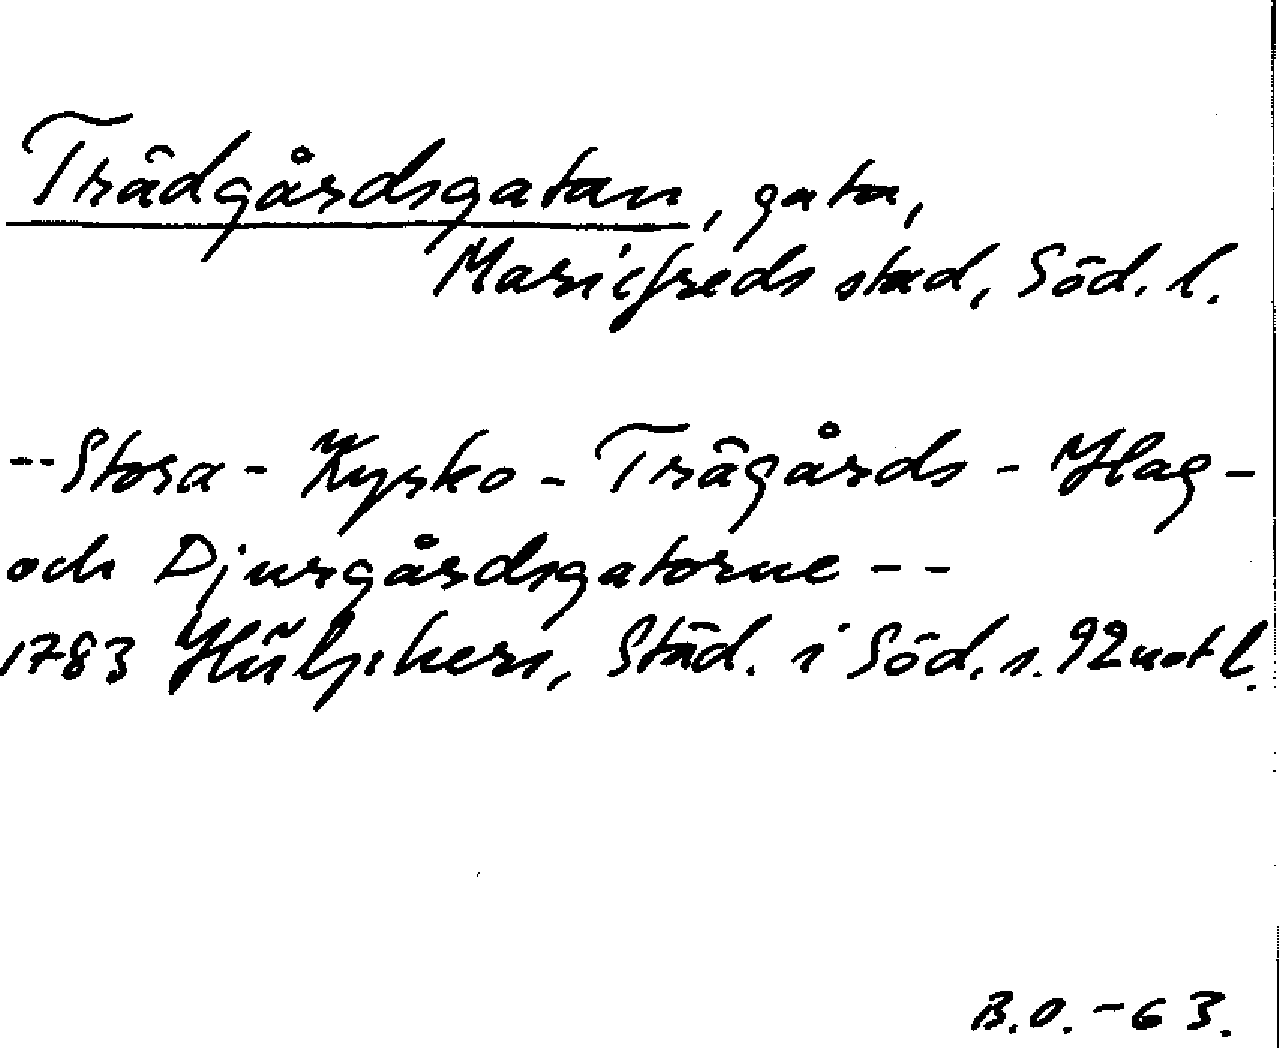 Trädgårdsgatan, gata,
Mariefreds stad, Söd. l.
-- Stora - Kyrko - Trägårds - Hag -
och Djurgårdsgatorne --
1783 Hülphers, Städ. i Söd. s. 92 not l.
B.O. -63.